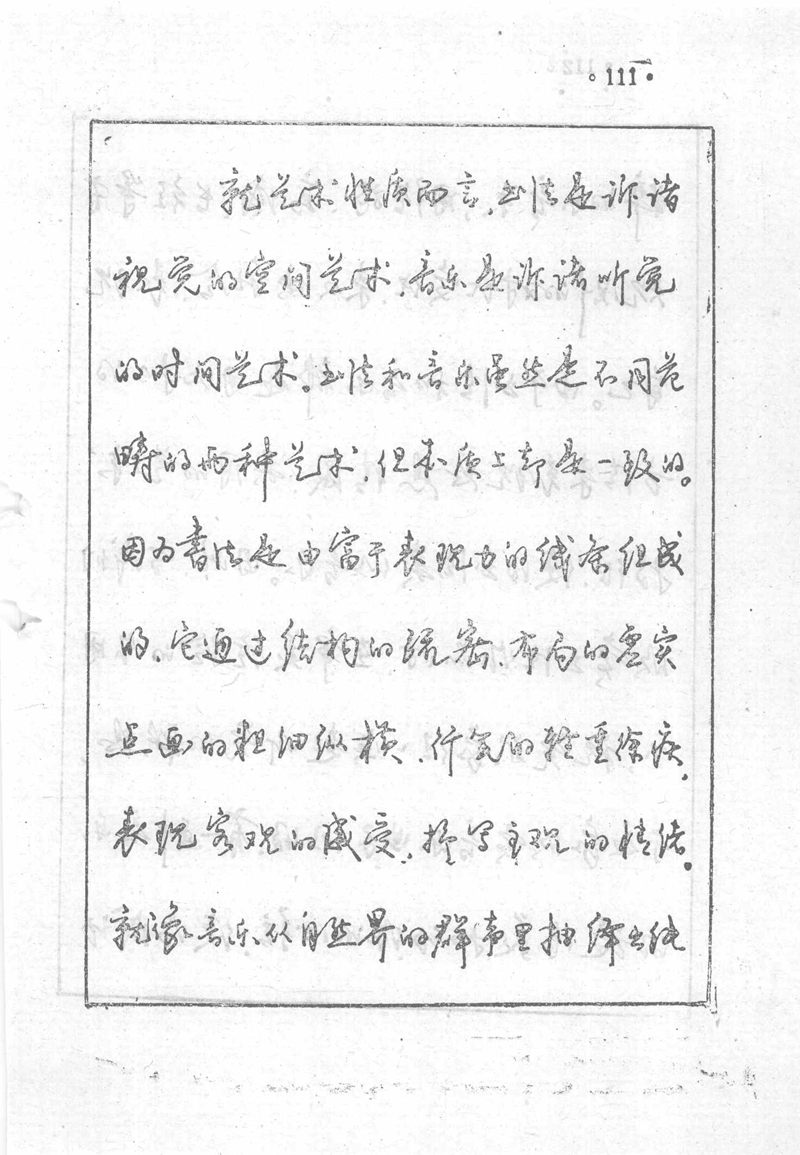 111
就艺术性质而言，书法是诉诸
视觉的空间艺术，音乐是诉诸听觉
的时间艺术。书法和音乐虽然是不同范
畴的两种艺术，但本质上却是一致的。
因为书法是由富于表现力的线条组成
的、它通过结构的疏密、布局的虚实
点画的粗细纵横、行气的轻重徐疾，
表现客观的感受，抒写主观的情绪。
就像音乐从自然界的群声里抽绎出纯